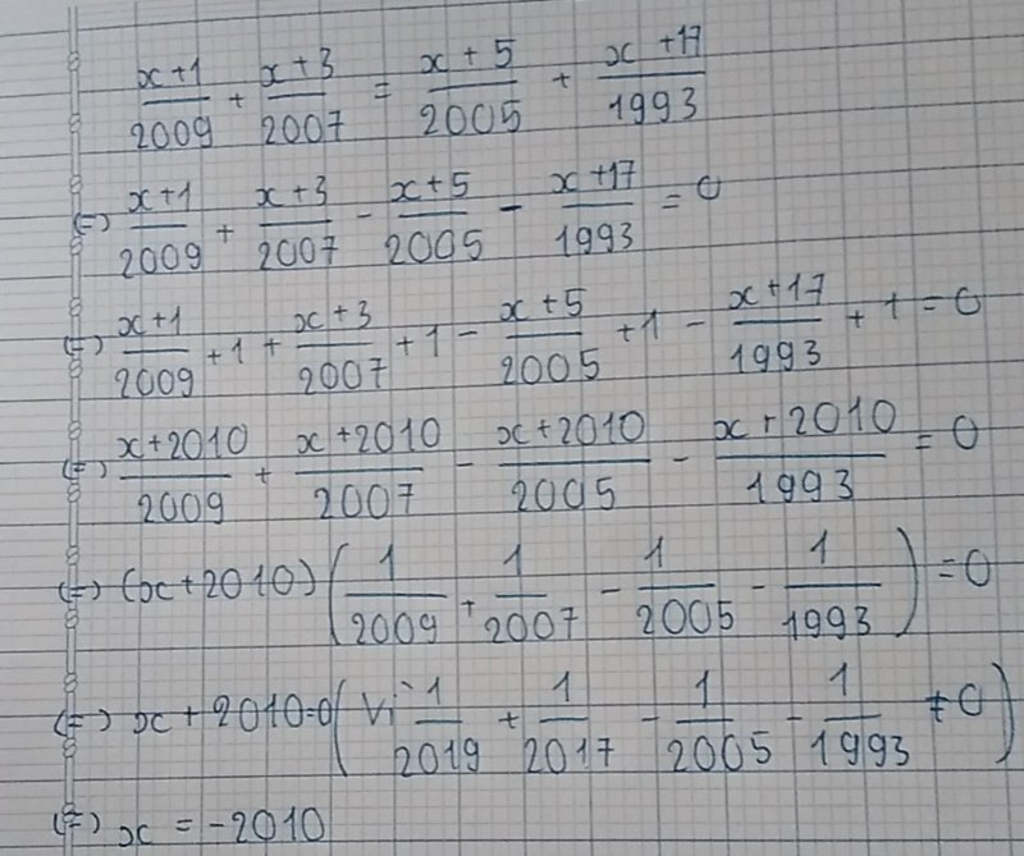 (x+1)/2009 + (x+3)/2007 = (x+5)/2005 + (x+17)/1993
(=) (x+1)/2009 + (x+3)/2007 - (x+5)/2005 - (x+17)/1993 = 0
(=) (x+1)/2009 + 1 + (x+3)/2007 + 1 - (x+5)/2005 + 1 - (x+17)/1993 + 1 = 0
(=) (x+2010)/2009 + (x+2010)/2007 - (x+2010)/2005 - (x+2010)/1993 = 0
(=) (x+2010) (1/2009 + 1/2007 - 1/2005 - 1/1993) = 0
(=) x+2010=0 (Vì 1/2019 + 1/2017 - 1/2005 - 1/1993 ≠ 0)
(=) x = -2010